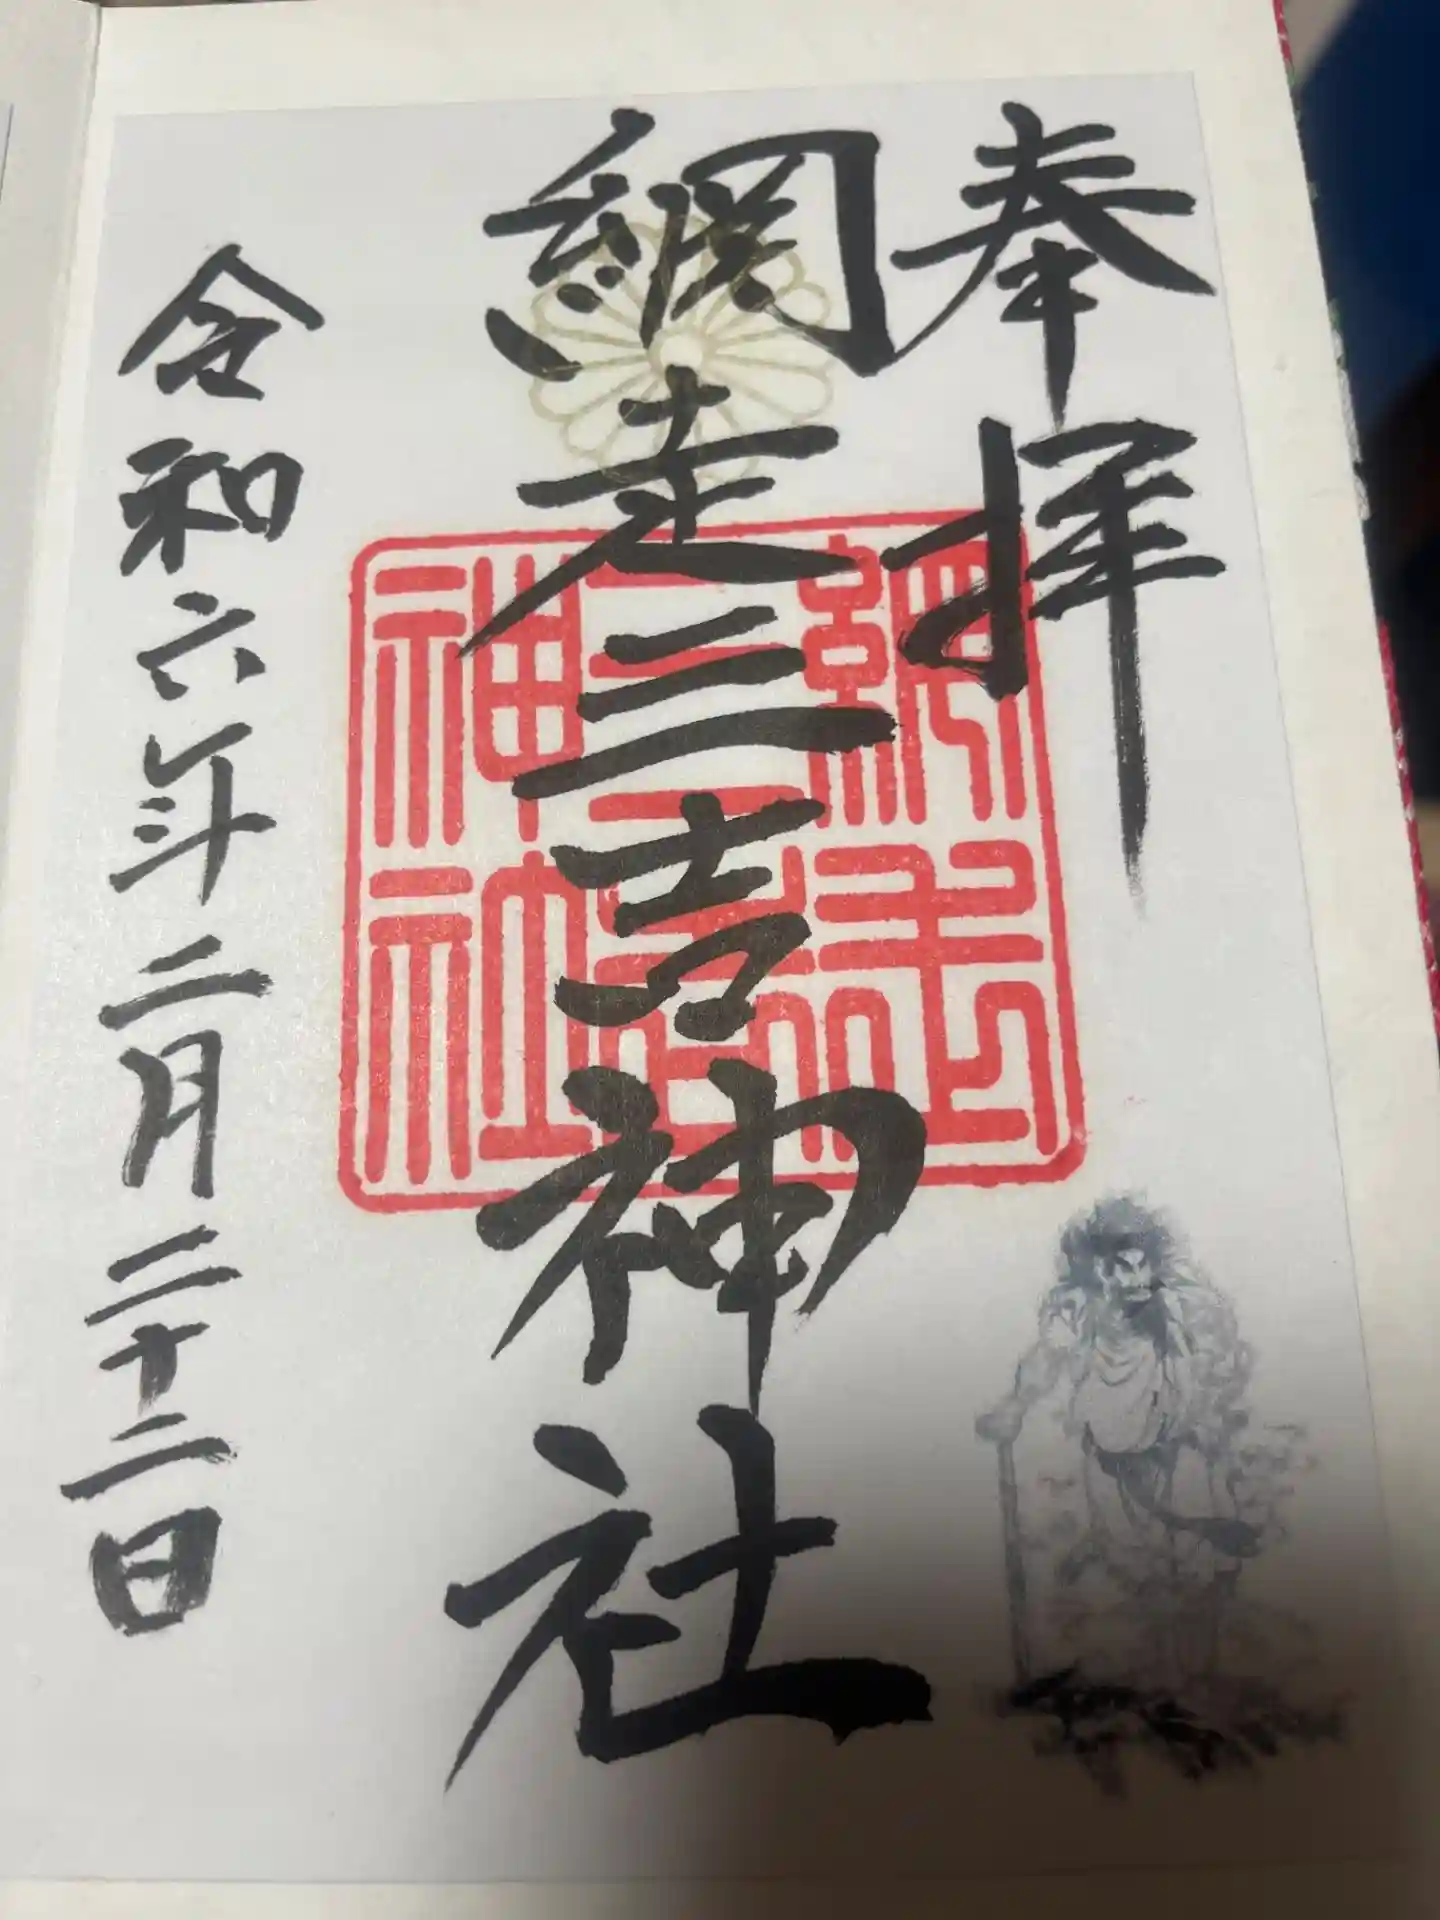 奉拝
網走三吉神社
網走三吉神社
令和六年二月二十二日